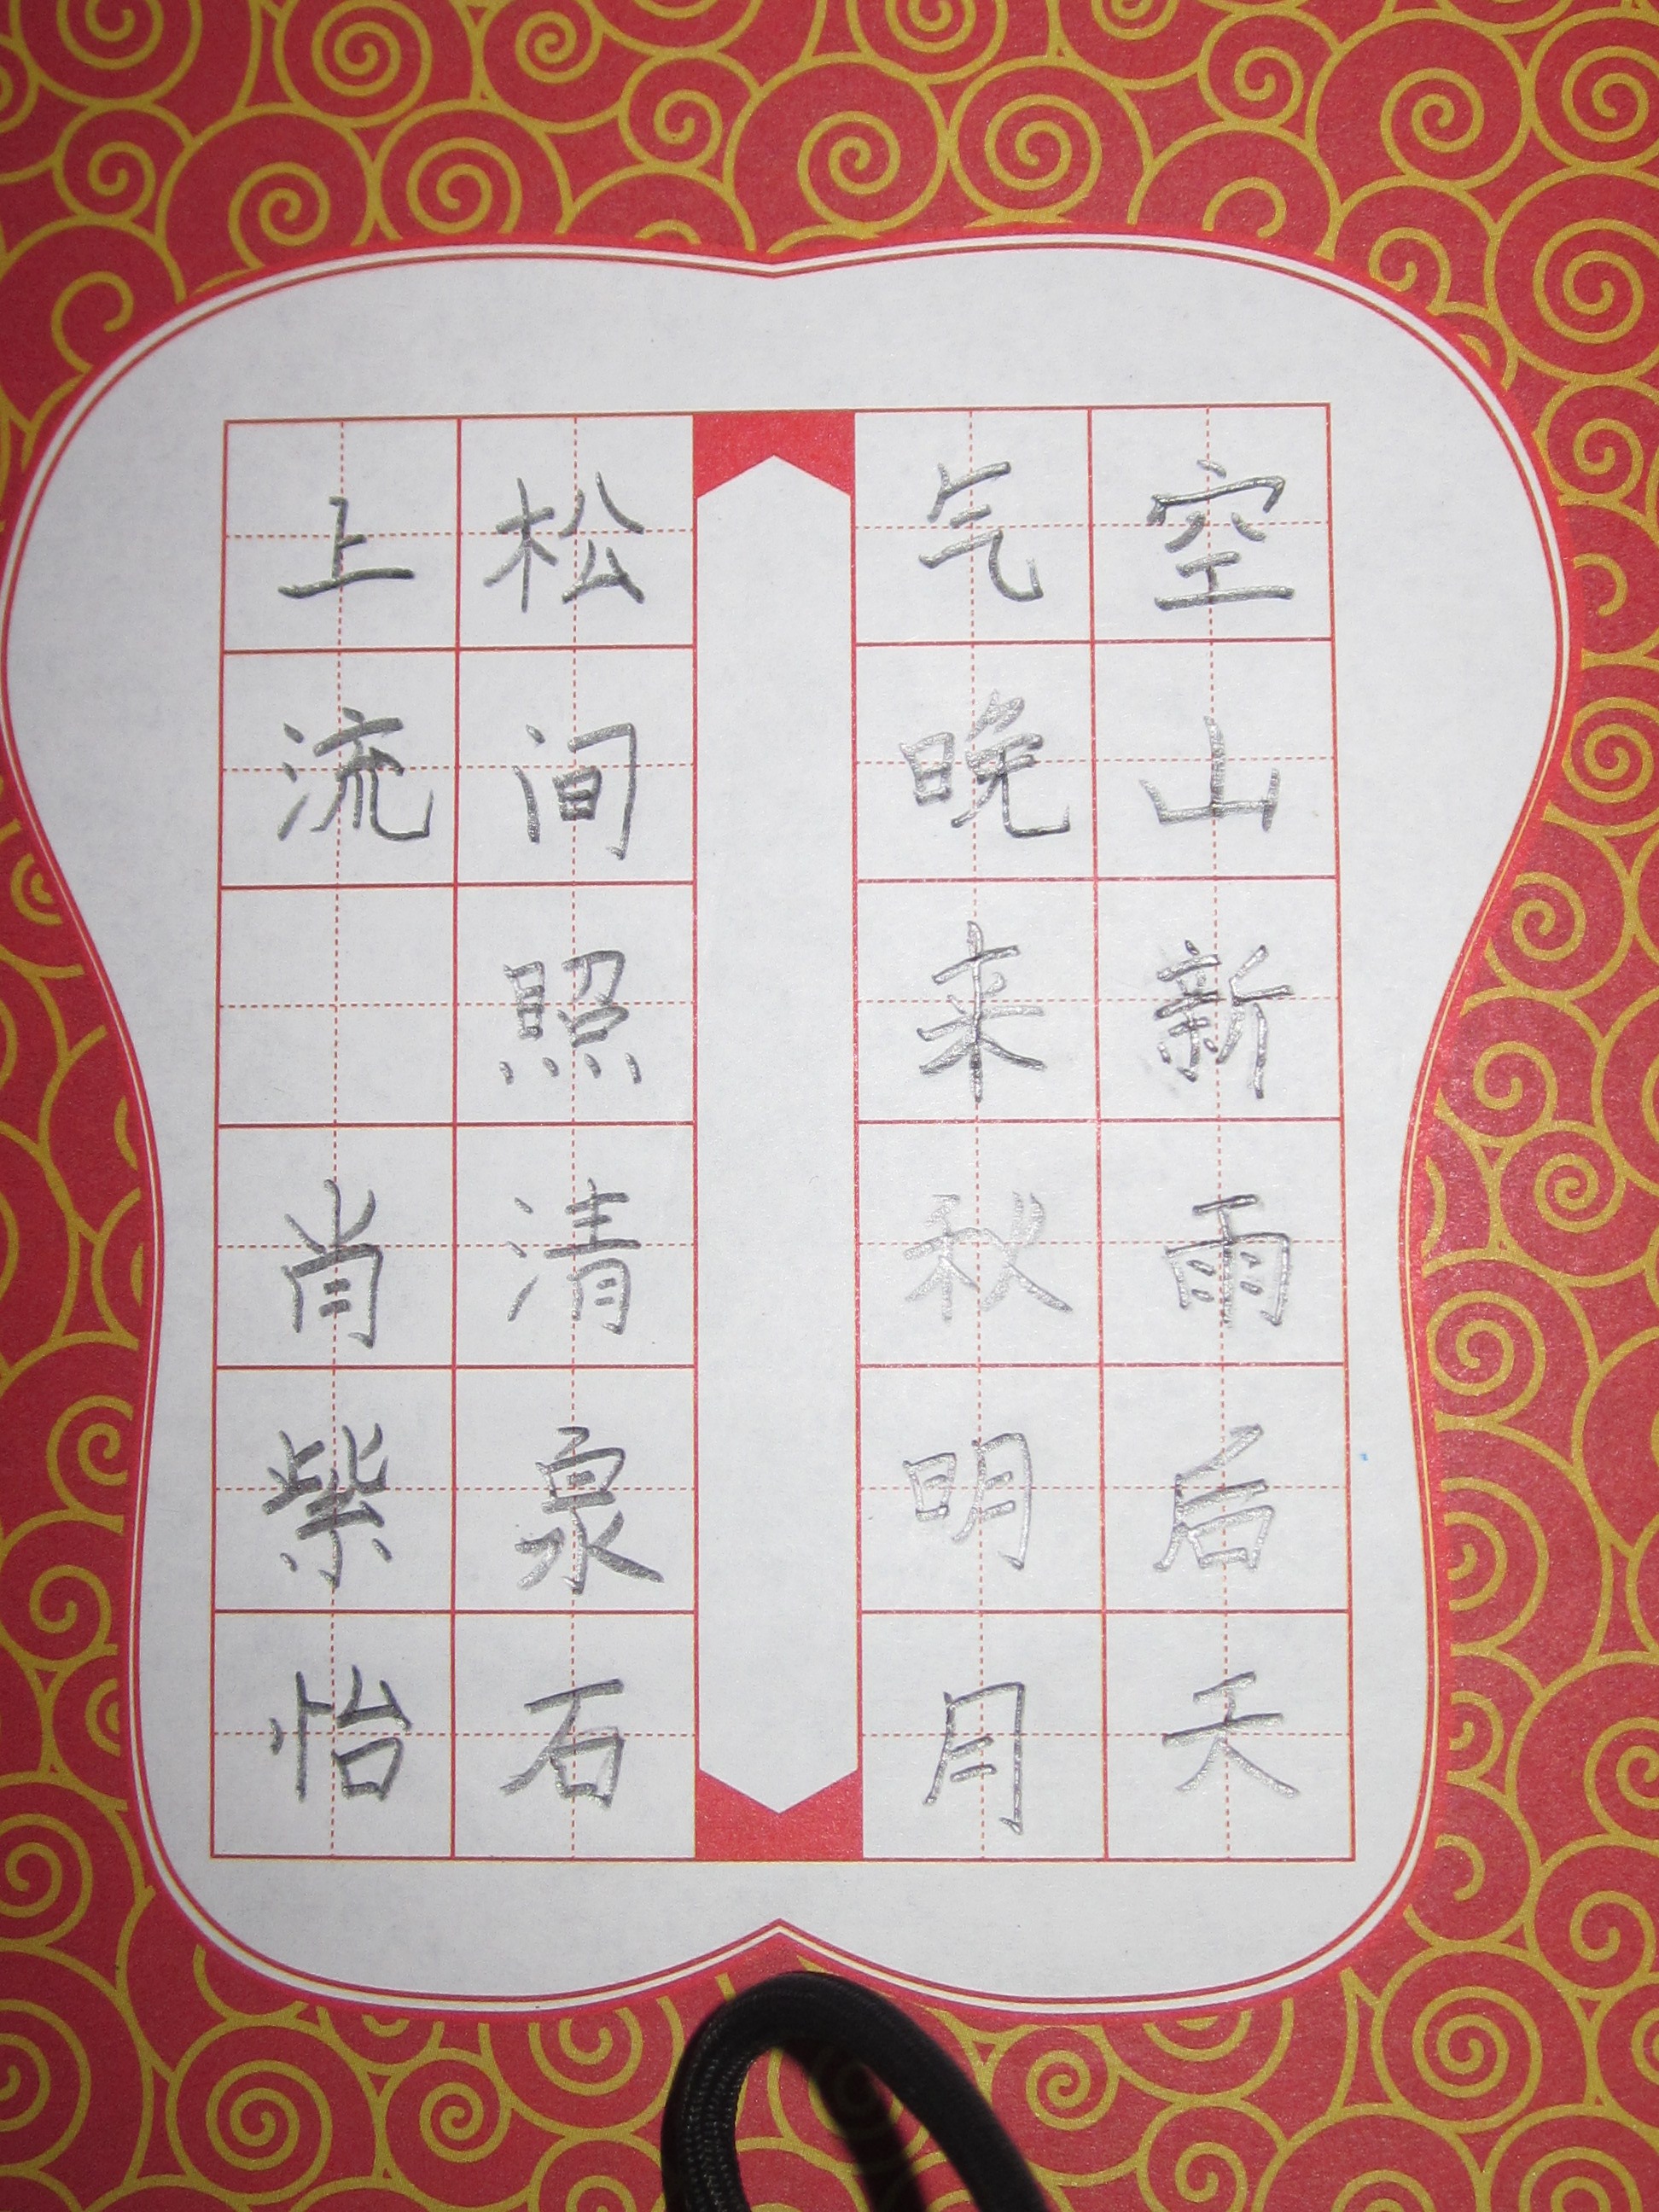 空山新雨后天
气晚来秋明月
松间照清泉石
上流 肖紫怡